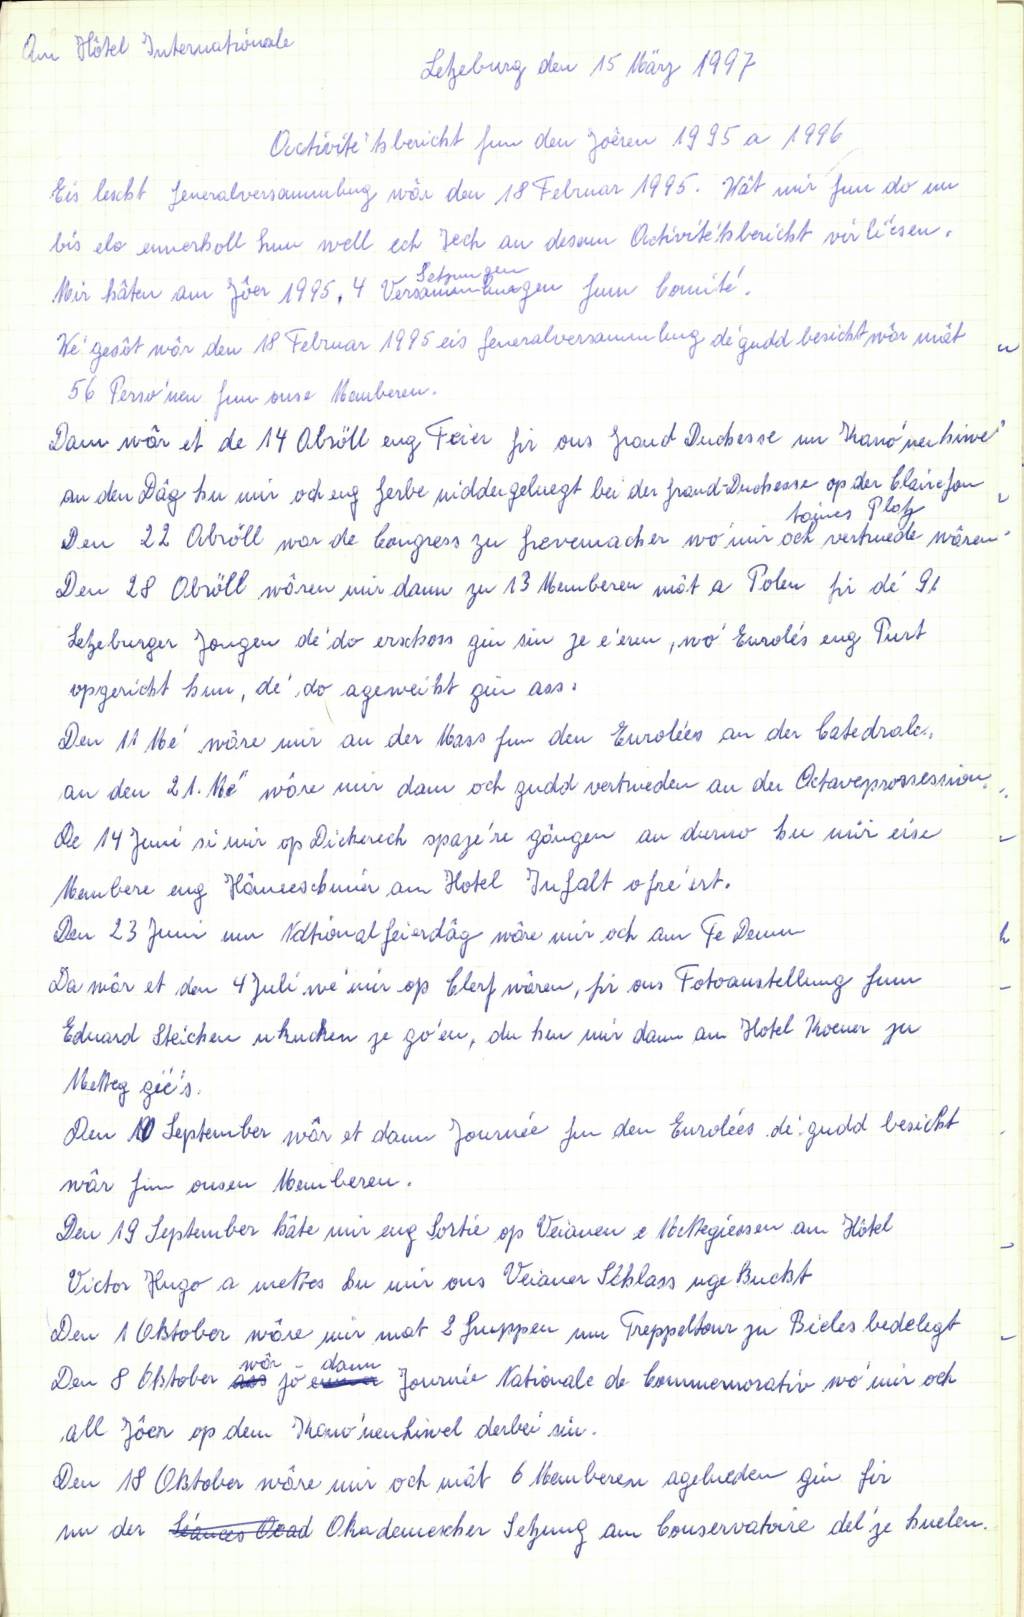 Am Hôtel Internationale
Letzeburg den 15 März 1997
Activité'tsbericht fun den Joëren 1995 a 1996
Eis lescht Generalversammlung wâr den 18 Februar 1995. Wât mir fun do un
bis elo ennerholl hun well ech Iech an desem Activité'tsbericht vir liésen.
Mir hâten am Jôer 1995, 4 Versammlungen Setzungen fum Comité.
We' gesôt wâr den 18 Februar 1995 eis Generalversammlung dé gudd besicht wâr mât
56 Perso'nen fun onse Memberen.
Dann wâr et de 14 Abröll eng Feier fir ons Grand Duchesse um Kano'nenhiwel
an den Dâg hu mir och eng Gerbe niddergeluegt bei der Grand-Duchesse op der Clairefontaines Platz
Den 22 Abröll war de Congress zu Grevemacher wo' mir och vertruede wâren
Den 28 Abröll wâren mir dann zu 13 Memberen mât a Polen fir dé 91
Letzeburger Jongen dé do erschoss gin sin ze e'eren, wo' Eurolés eng Purt
opgericht hun, dé do ageweiht gin ass.
Den 11 Mé wâre mir an der Mass fun den Eurolées an der Catedrale,
an den 21. Mé wâre mir dann och gudd vertrieden an der Octaveprossession.
De 14 Juni si mir op Dickerech spazé're gângen an durno hu mir eise
Membere eng Hâmeeschmier am Hotel Infalt offre'ert.
Den 23 Juni um Nationalfeierdâg wâre mir och am Te Deum
Da wâr et den 4 Juli wé mir op Clerf wâren, fir ons Fotoaustellung fum
Eduard Steichen ukucken ze go'en, du hu mir dann am Hotel Koener zu
Metteg giés.
Den 10 September wâr et dann Journée fun den Eurolées dé gudd besicht
wâr fun onsen Memberen.
Den 19 September hâte mir eng Sortie op Veianen e Mettegiessen am Hôtel
Victor Hugo a mettes hu mir ons Veianer Schlass uge Buckt
Den 1 Oktober wâre mir mat 2 Gruppen um Treppeltour zu Bieles bedelegt
Den 8 Oktober wâr jo dann Journée Nationale de Commemorativ wo' mir och
all Jôer op dem Kano'nenhiwel derbei sin.
Den 18 Oktober wâre mir och mât 6 Memberen agelueden gin fir
un der Séances Acad Akademescher Setzung am Conservatoire del'ze huelen.